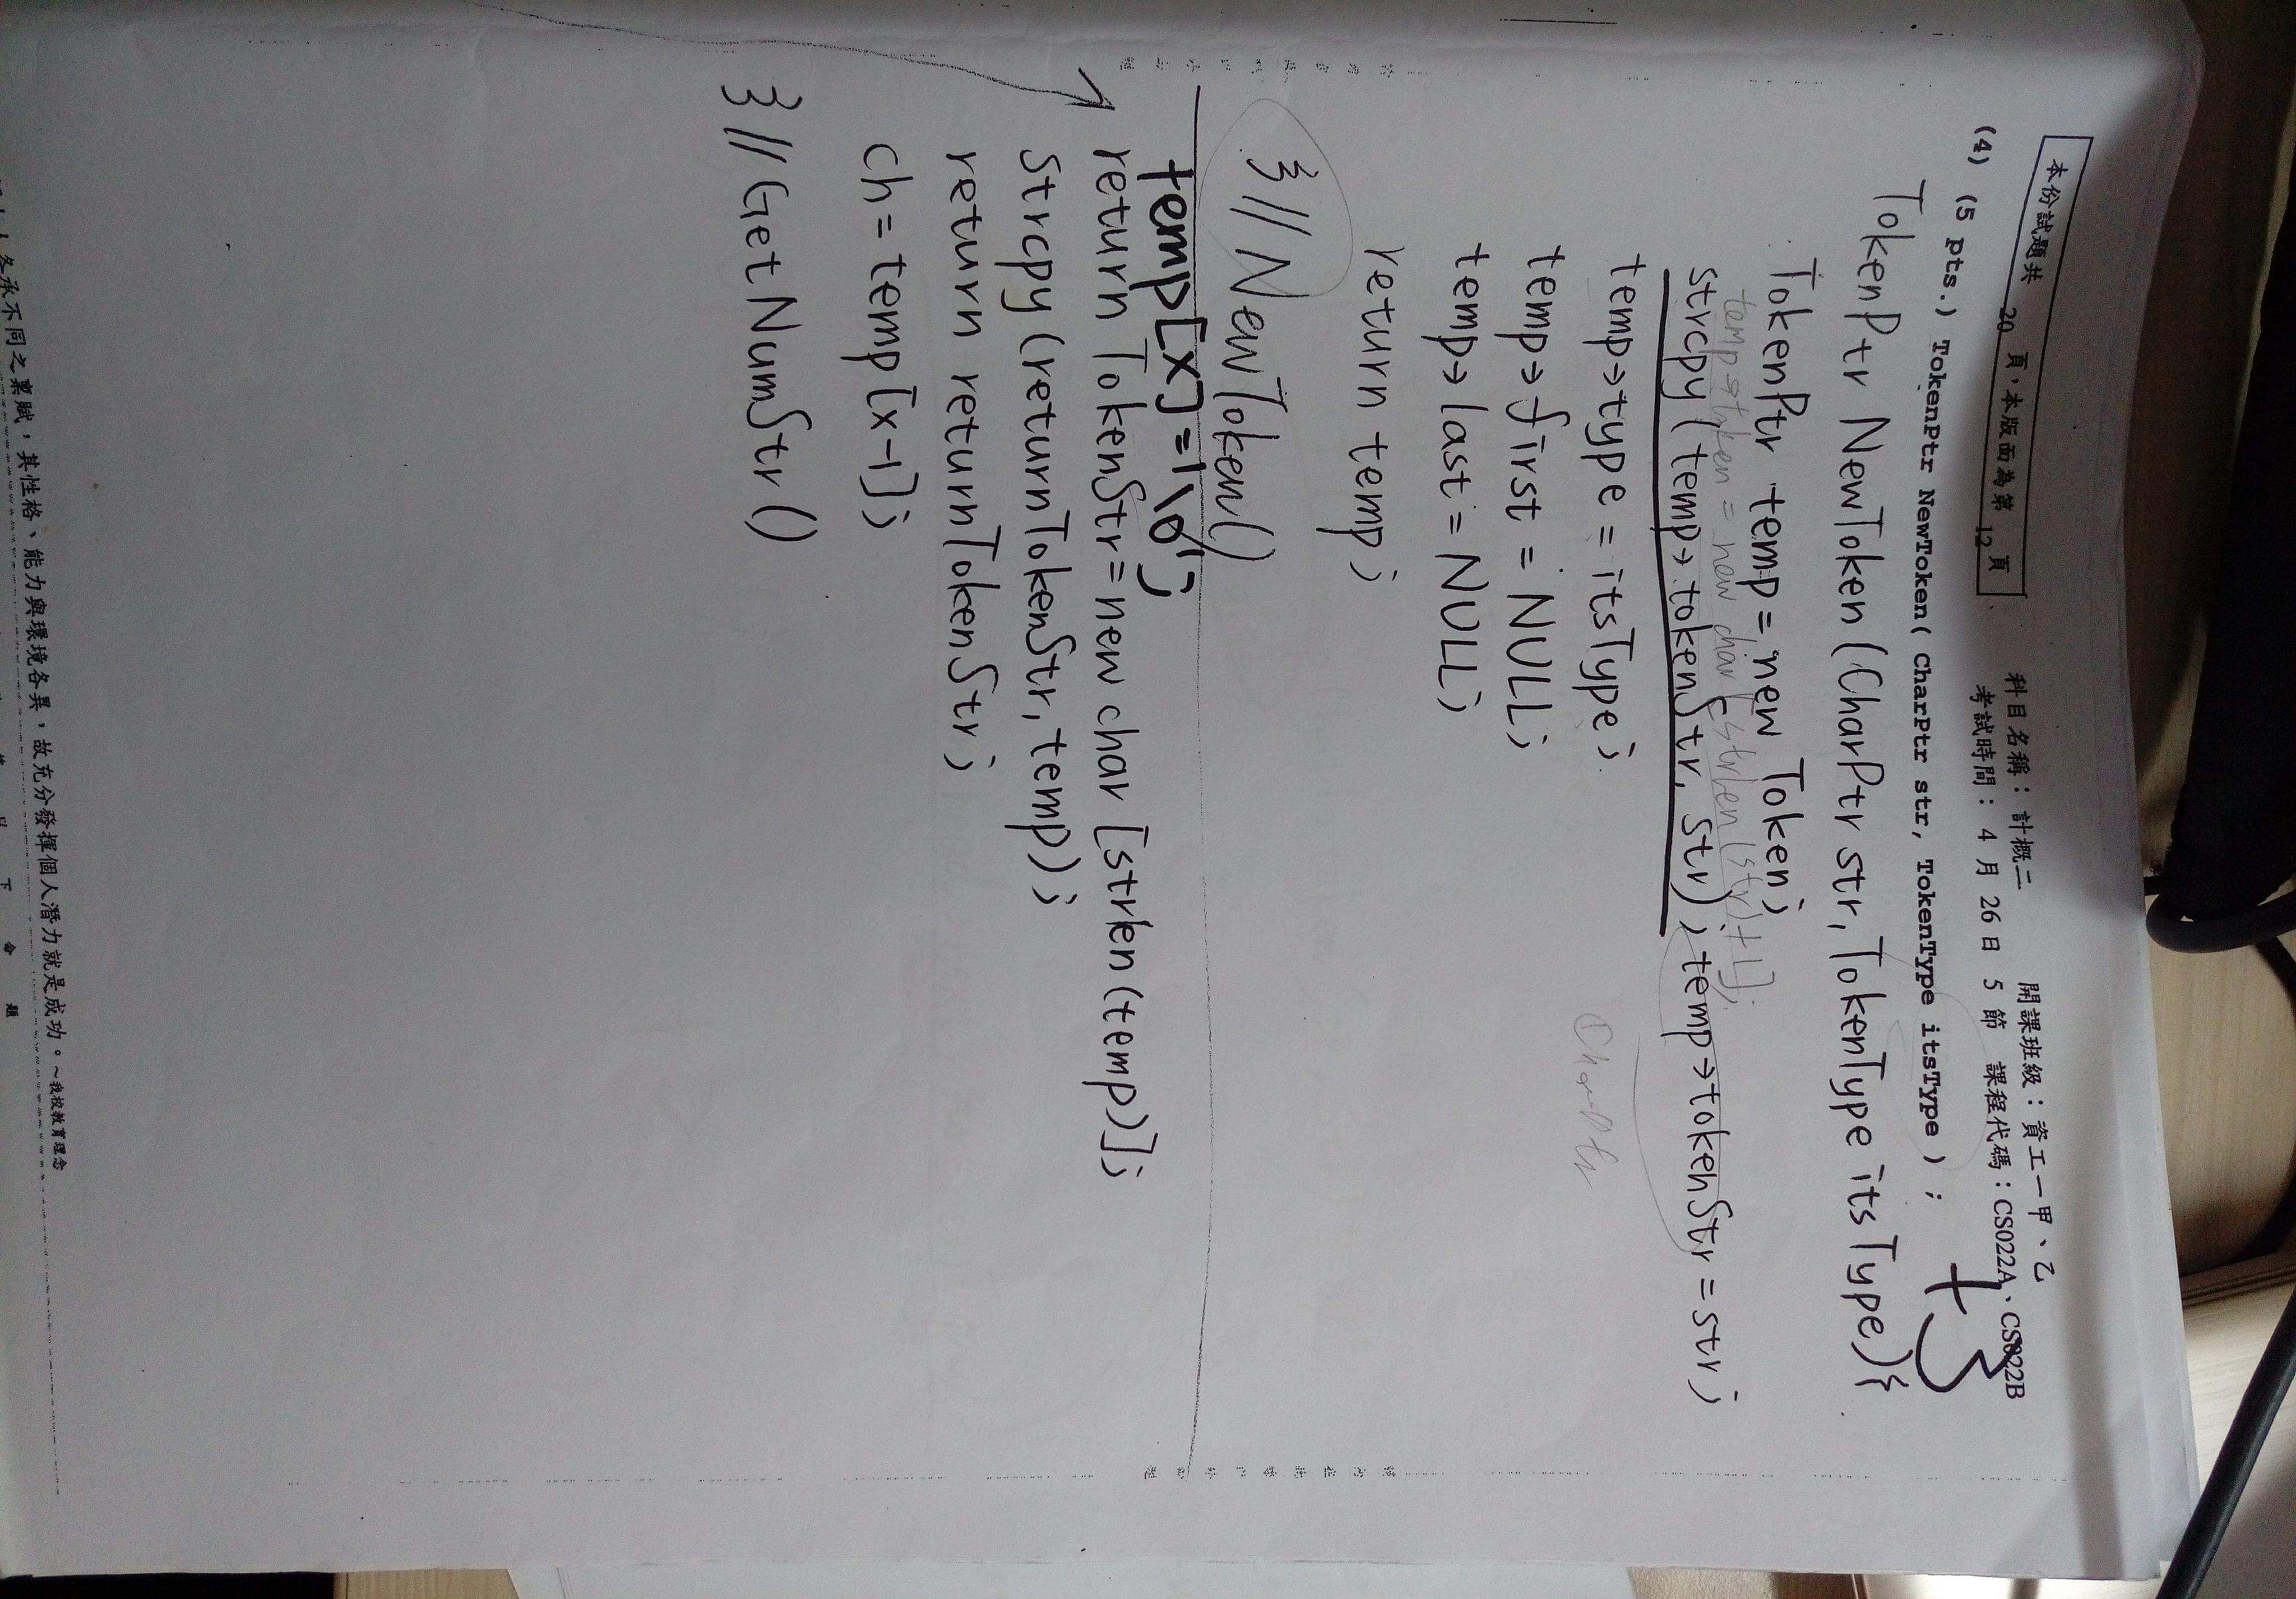 本份試題共 20 頁，本版面為第 12 頁
科目名稱：計概二 開課班級：資工一甲、乙
考試時間：4 月 26 日 5 節 課程代碼：CS022A、CS022B
+3
(4) (5 pts.) TokenPtr NewToken( CharPtr str, TokenType itsType ) ;
TokenPtr NewToken (CharPtr str, TokenType itsType){
TokenPtr temp = new Token;
temp→token = new char[strlen(str)+1];
strcpy(temp→tokenStr, str); temp→tokenStr = str;
temp→type = itsType;
CharPtr
temp→first = NULL;
temp→last = NULL;
return temp;
}//NewToken()
temp[x]='\0';
return TokenStr = new char [strlen(temp)];
strcpy(returnTokenStr, temp);
return returnTokenStr;
ch = temp[x-1];
}//GetNumStr()
各承不同之稟賦，其性格、能力與環境各異，故充分發揮個人潛力就是成功。~我校教育理念
以 下 命 題